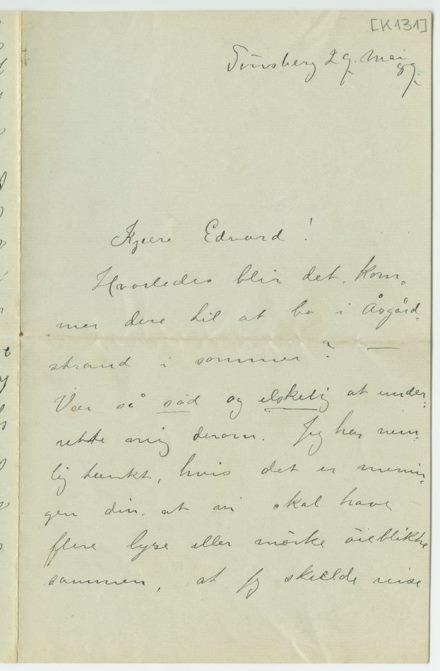 [K131]
Tönsberg 29. mai
89.
Kjære Edvard!
Hvorledes blir det. Kom-
mer dere til at bo i Åsgård-
strand i sommer? —
Vær så såd og elskelig at under-
rette mig derom. Jeg har nem-
lig tænkt, hvis det er menin-
gen din at vi skal have
flere lyse eller mörke öieblikke
sammen, at jeg skulde reise